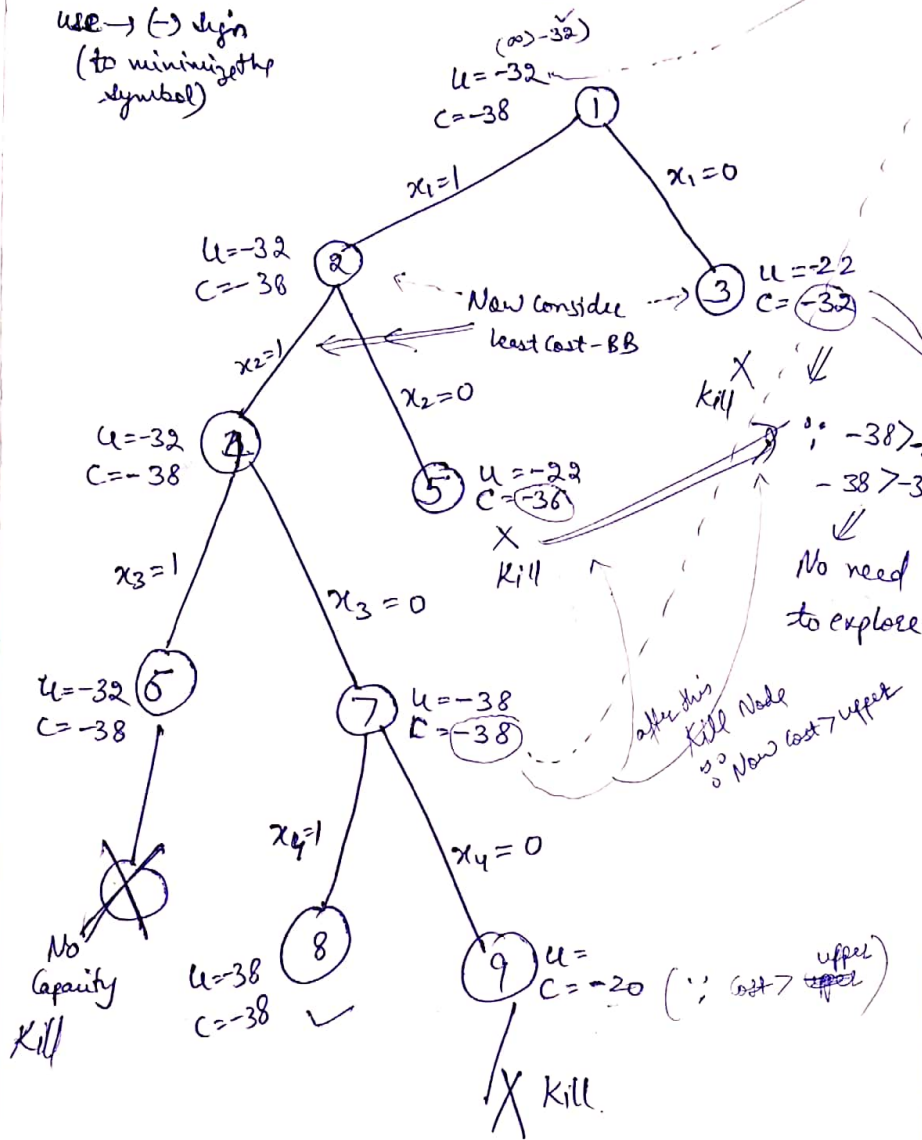 use → (-) sign
(to minimize the
symbol)
(∞) -32)
U=-32
C=-38
1
x₁=1
x₁=0
U=-32
C=-38
2
Now consider
least cost-BB
3
U=-22
C=-32
x₂=1
x₂=0
X
Kill
⇓
U=-32
C=-38
5
U=-22
C=-36
X
Kill
∵ -38>-
-38>-3
⇓
No need
to explore
x₃=1
x₃=0
U=-32
C=-38
6
7
U=-38
C=-38
after this
Kill Node
∵ Now cost>upper
x₄=1
x₄=0
No
Capacity
Kill
8
U=-38
C=-38 ✓
9
U=
C=-20 (∵ cost> upper)
X Kill.